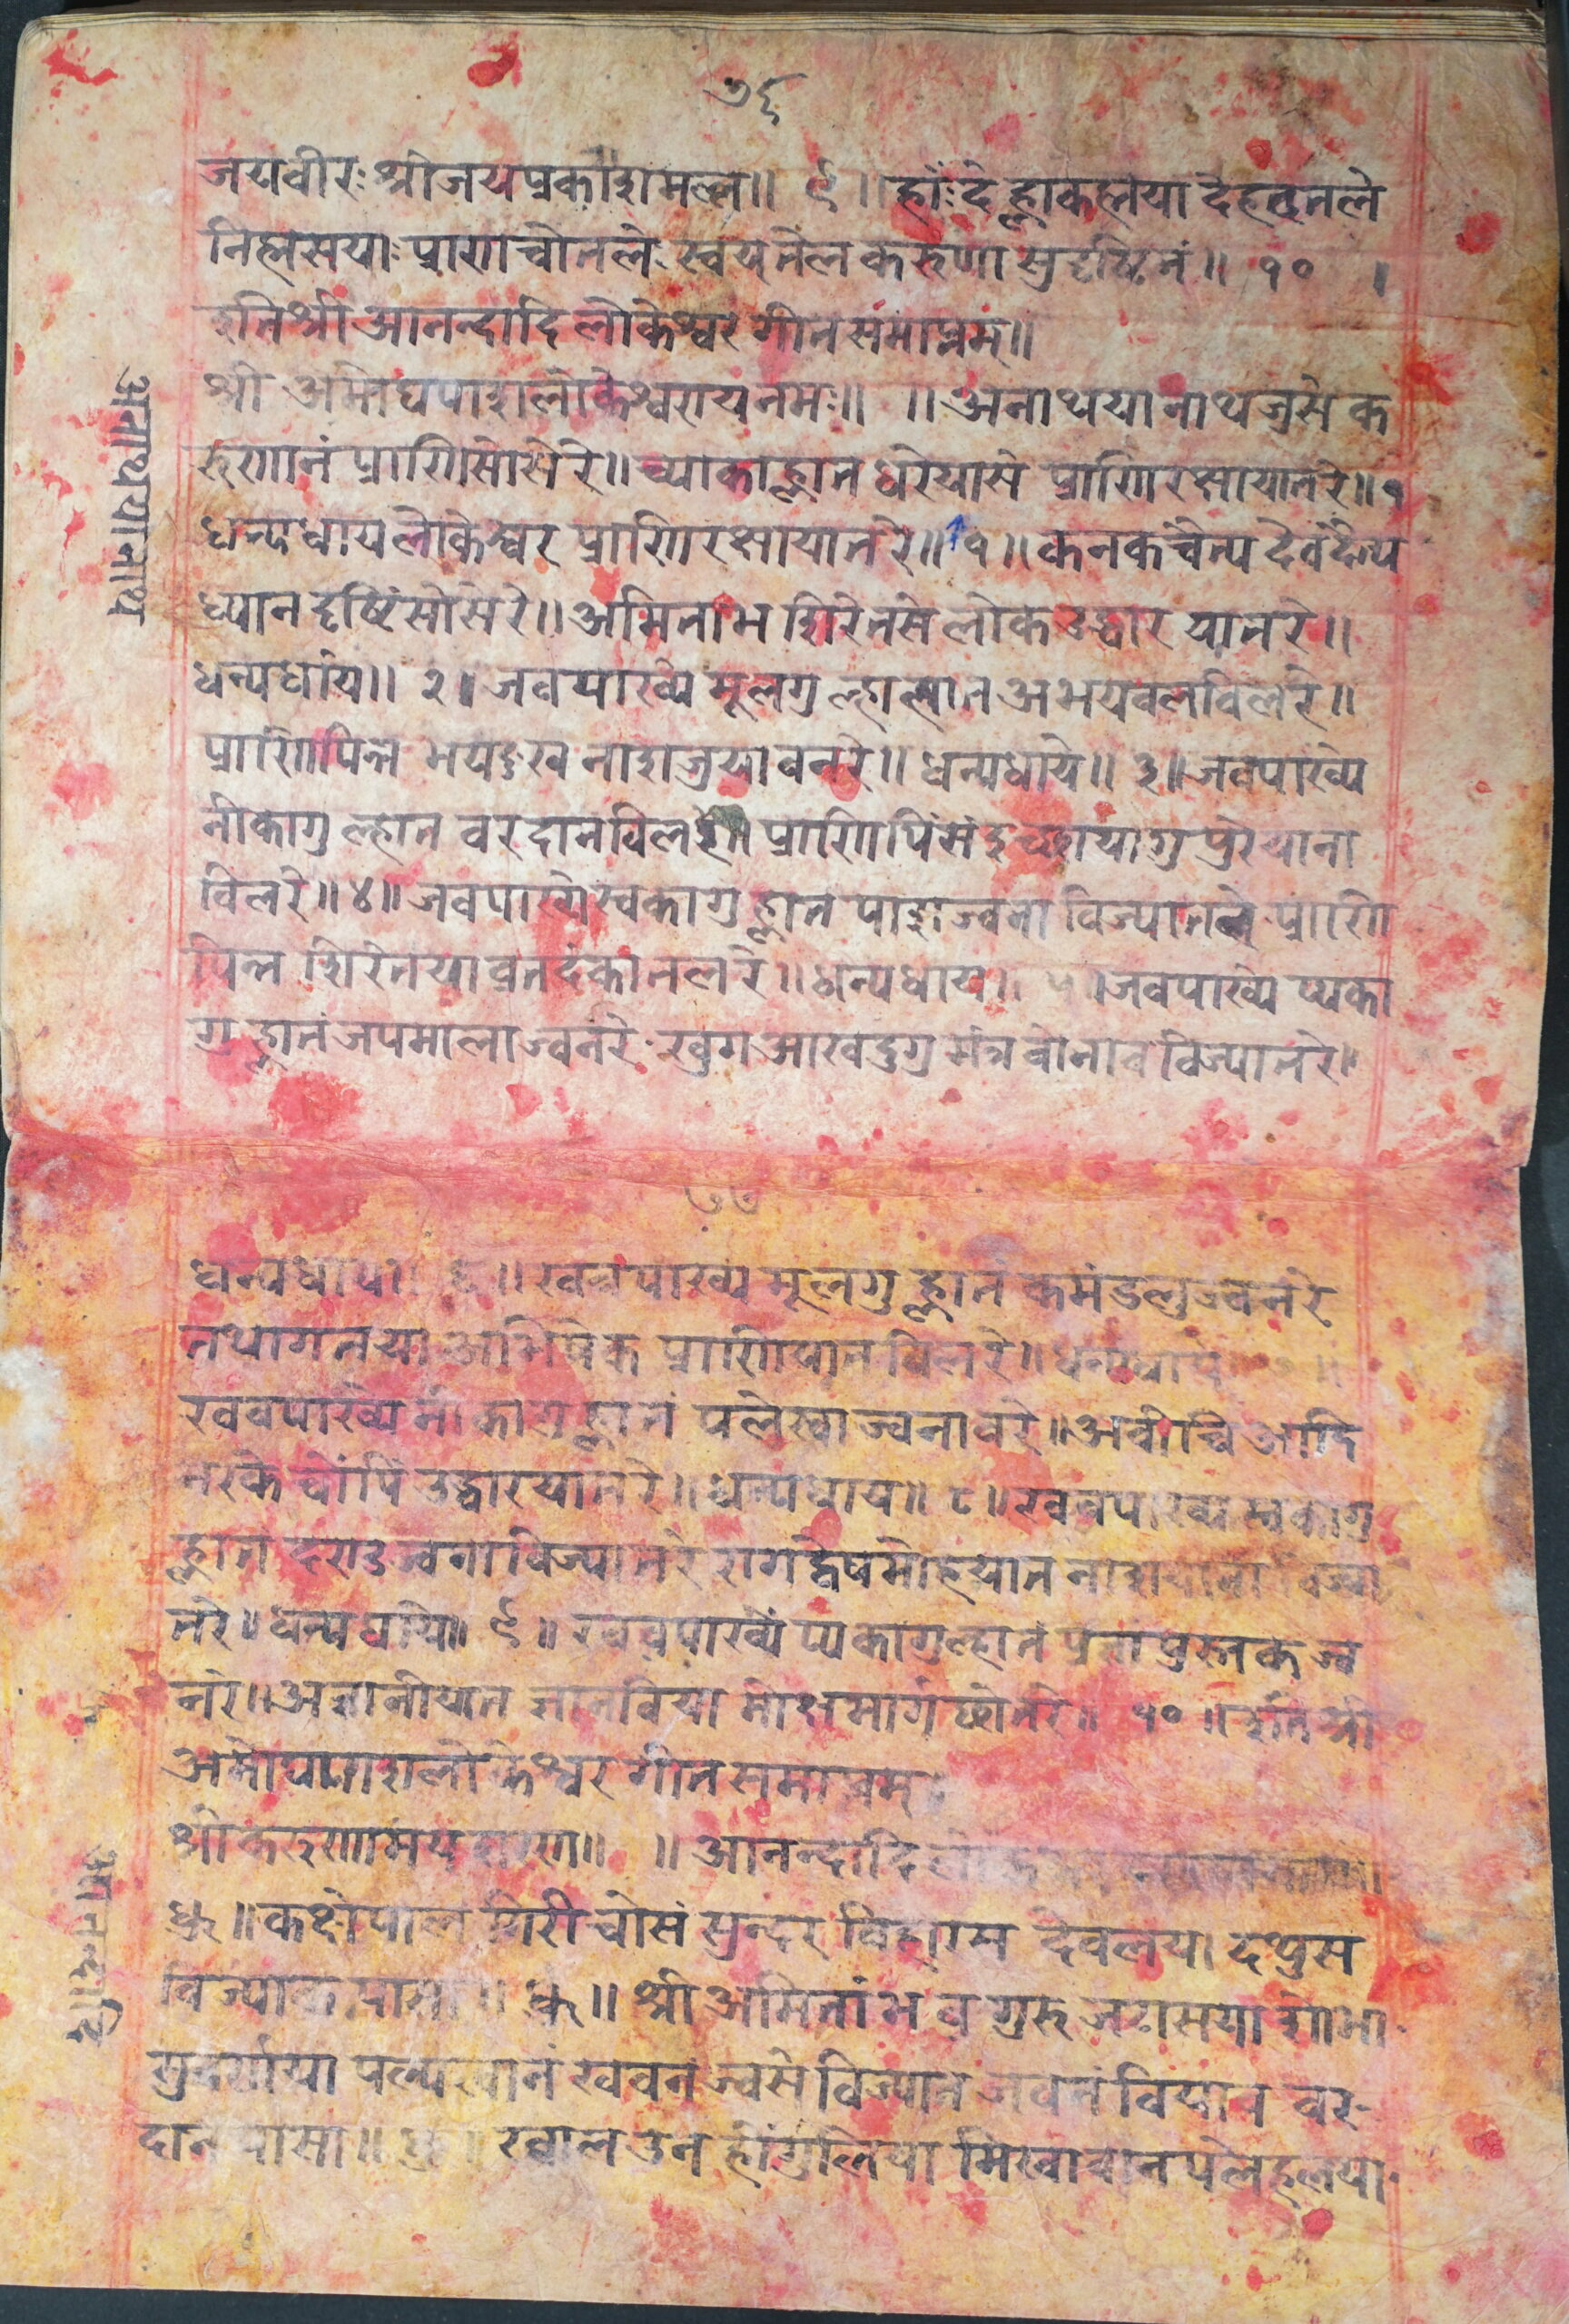 ७६
जयवीरः श्रीजयप्रकाशमल्ल॥ ९ ॥ हाः दे ह्लाकह्लया देहत्वनले
निह्लसयाः प्राणच्चोनलेः स्वयनेल करुणा सुदृष्टिनं॥ १० ।
इति श्री आनन्दादि लोकेश्वर गीत समाप्तम्॥
श्री अमोघपाशलोकेश्वराय नमः॥ ॥ अनाथया नाथ जुसे क
रुणानं प्राणिसोसेरे॥ च्याकाह्लान धरेयासे प्राणिरक्षायातरे॥ १
धन्यधाय लोकेस्वर प्राणिरक्षायातरे॥ १ ॥ कनकचैत्य देवंछेय
ध्यान दृष्टिंसोसेरे॥ अमिताभ शिरेतसे लोक उद्धार यातरे॥
धन्यधाय॥ २। जवपाख्ये मूलगु ल्हातान अभयवलविलरे॥
प्राणिपिन्त भयदुःख नाशजुयावनरे॥ धन्यधाये॥ ३॥ जवपाख्य
नीकागु ल्हातन वरदानविलरे॥ प्राणिपिंसं इच्छायागु पुरेयाना
विलरे॥ ४॥ जवपाख्ये स्वकागु ह्लातन पाशज्वना विज्यातले प्राणि
पिन्त शिरेतयाव्रतदंकातलरे॥ धन्यधाय। ५ । जवपाख्ये प्यका
गु ह्लातनं जपमालाज्वनरेः खुगआखदुगु मंत्र वोनाव विज्यातरे।
अनाथयानाथ
७७
धन्यधाय॥ ६ ॥ खववपाख्य मूलगु ह्लातनं कमंडलुज्वनरे
तथागतया अभिषेक प्राणियात विलरे॥ धन्यधाय
खववपाख्ये नीकागु ह्लातनं पलेस्वाज्वनावरे॥ अवीचि आदि
नरके चोंपिं उद्धारयातरे॥ धन्यधाय॥ ८॥ खववपाख्य स्वकागु
ह्लातन दराउज्वना विज्यातरे रागद्वेषमोहयात नाशयाना विज्या
तरे॥ धन्यधाये॥ ९॥ खववपाख्ये प्यकागु ल्हातनं प्रज्ञापुस्तक ज्व
नरे॥ अज्ञानीयात ज्ञानविया मोक्षमार्ग छोतरे॥ १० ॥ इति श्री
अमोघपाशलोकेश्वर गीत समाप्तम्
श्रीकरुणामय शरण॥ ॥ आनन्दादि
ध्रु ॥ कक्षेपाल गिरी चोसं सुन्दर विहारस देवलया देथुस
विज्याक पासा॥ ध्रु॥ श्री अमिताभ व गुरु जटासया शोभा
सुवर्णया पल्यस्वानं खवनं ज्वसे विज्यात जवनं वियाव वर-
दान पासा॥ ध्रु ॥ ख्वाल उन हींगुलिया मिखावान पलेहलया
आनन्दादि